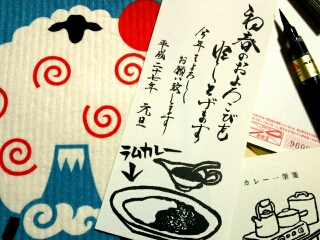 初春のおよろこびを
申し上げます
今年もよろしく
お願い致します
平成二十七年 元旦
ラムカレー
カレー一筆箋